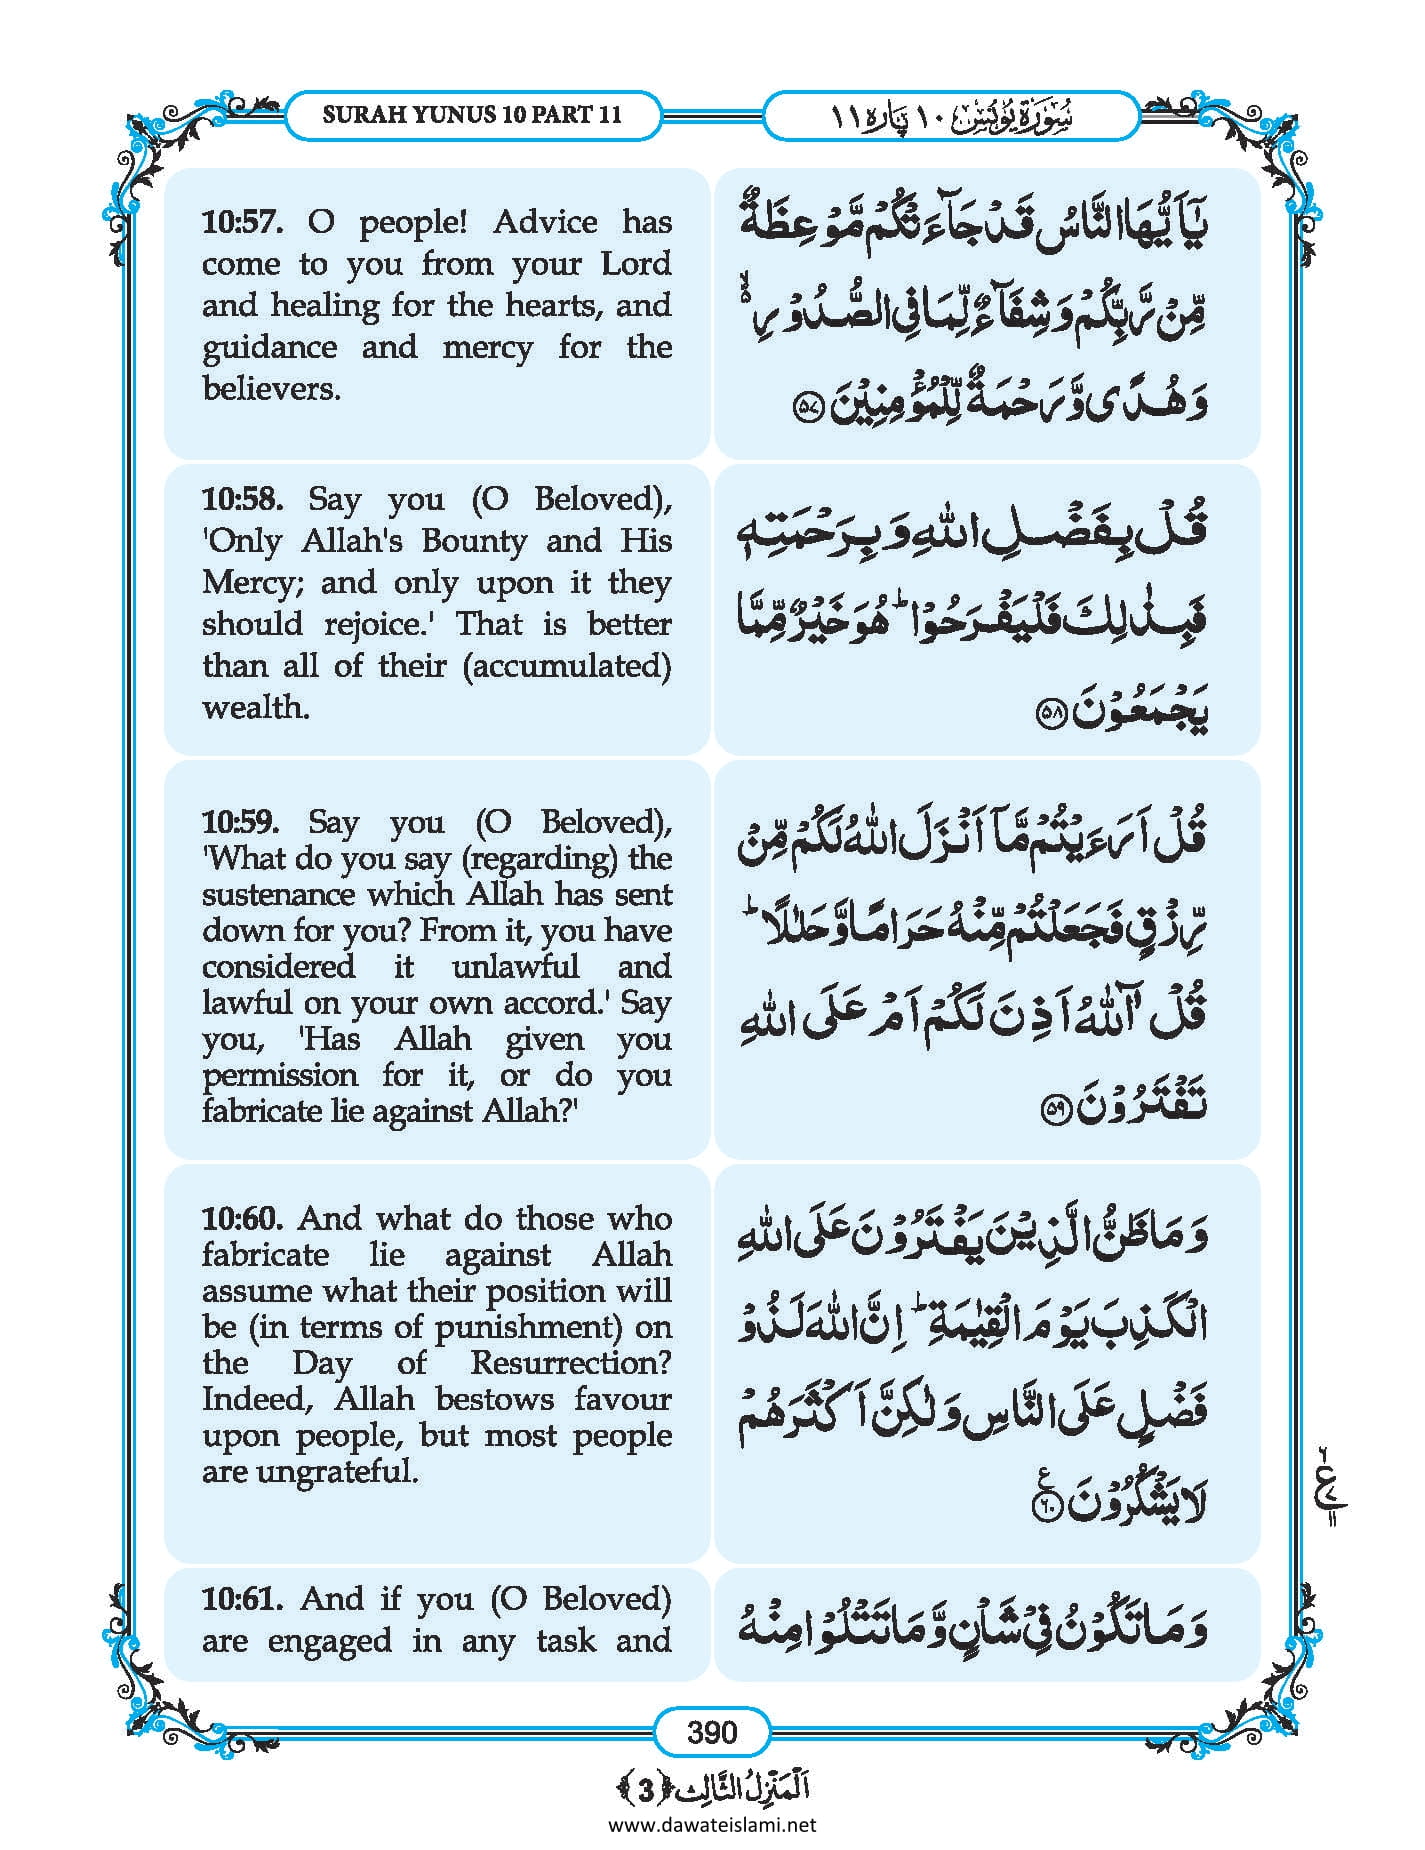 SURAH YUNUS 10 PART 11
سُوْرَةُ يُوْنُسْ ١٠ پَارَه ١١
10:57. O people! Advice has
come to you from your Lord
and healing for the hearts, and
guidance and mercy for the
believers.
يٰۤاَيُّهَا النَّاسُ قَدْ جَآءَتْكُمْ مَّوْعِظَةٌ
مِّنْ رَّبِّكُمْ وَ شِفَآءٌ لِّمَا فِی الصُّدُوْرِ ۙ۬
وَ هُدًی وَّ رَحْمَةٌ لِّلْمُؤْمِنِیْنَ ﴿۵۷﴾
10:58. Say you (O Beloved),
'Only Allah's Bounty and His
Mercy; and only upon it they
should rejoice.' That is better
than all of their (accumulated)
wealth.
قُلْ بِفَضْلِ اللهِ وَ بِرَحْمَتِهٖ
فَبِذٰلِكَ فَلْیَفْرَحُوْا ؕ هُوَ خَیْرٌ مِّمَّا
یَجْمَعُوْنَ ﴿۵۸﴾
10:59. Say you (O Beloved),
'What do you say (regarding) the
sustenance which Allah has sent
down for you? From it, you have
considered it unlawful and
lawful on your own accord.' Say
you, 'Has Allah given you
permission for it, or do you
fabricate lie against Allah?'
قُلْ اَرَءَیْتُمْ مَّاۤ اَنْزَلَ اللهُ لَكُمْ مِّنْ
رِّزْقٍ فَجَعَلْتُمْ مِّنْهُ حَرَامًا وَّ حَلٰلًا ؕ
قُلْ آٰللهُ اَذِنَ لَكُمْ اَمْ عَلَی اللهِ
تَفْتَرُوْنَ ﴿۵۹﴾
10:60. And what do those who
fabricate lie against Allah
assume what their position will
be (in terms of punishment) on
the Day of Resurrection?
Indeed, Allah bestows favour
upon people, but most people
are ungrateful.
وَ مَا ظَنُّ الَّذِیْنَ یَفْتَرُوْنَ عَلَی اللهِ
الْكَذِبَ یَوْمَ الْقِیٰمَةِ ؕ اِنَّ اللهَ لَذُوْ
فَضْلٍ عَلَی النَّاسِ وَ لٰكِنَّ اَكْثَرَهُمْ
لَا یَشْكُرُوْنَ ﴿۶۰﴾ ع
ع
10:61. And if you (O Beloved)
are engaged in any task and
وَ مَا تَكُوْنُ فِیْ شَاْنٍ وَّ مَا تَتْلُوْا مِنْهُ
390
اَلْمَنْزِلُ الثَّالِث ﴿3﴾
www.dawateislami.net